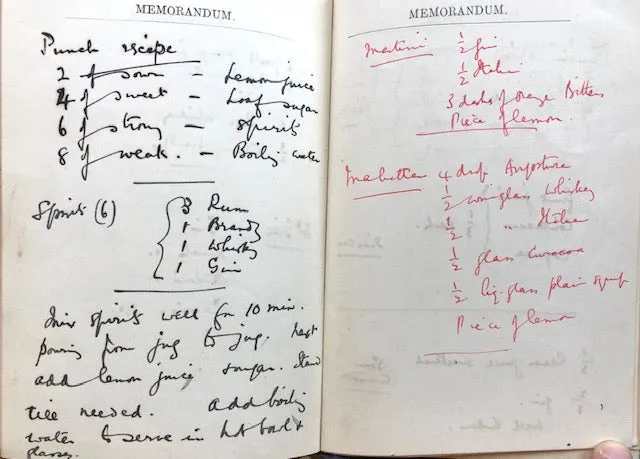 MEMORANDUM.
Punch recipe
2 of sour – Lemon juice
4 of sweet – Loaf sugar
6 of strong – Spirits
8 of weak. – Boiling water
Spirits (6) 3 Rum
1 Brandy
1 Whisky
1 Gin
Mix spirits well for 10 min.
pouring from jug to jug. Next
add lemon juice sugar. Stand
till needed. Add boiling
water to serve in hot bowl &
glasses.
MEMORANDUM.
Martini ½ gin
½ Italian
3 dashes of orange Bitters
Piece of lemon.
Manhattan 4 drops Angostura
½ wineglass Whiskey
½ " Italian
½ glass Curacoa
½ liq. glass plain syrup
Piece of lemon